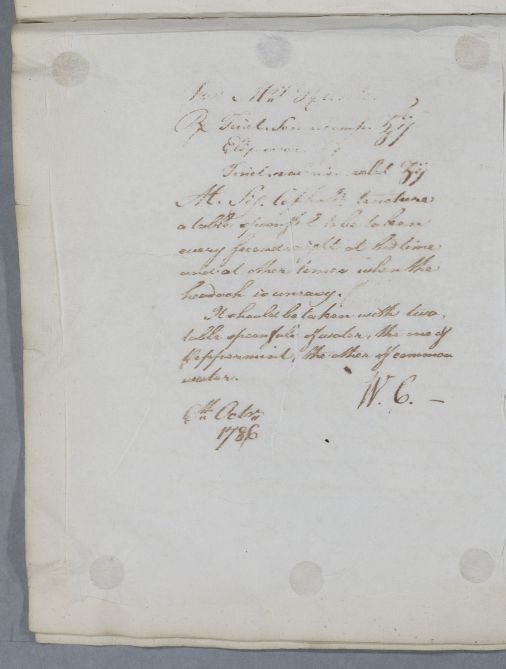 For Mrs
Rx Tinct. Sen. comp. ℥ij
Elix.
Tinct. valat. ℥ij
M. Sig. Cephalic tincture
a table spoonful to be taken
every second night at bedtime
and at other times when the
headach is uneasy.
It should be taken with two
table spoonfuls of water, the one of
Peppermint, the other of common
water.
W. C. –
6th Octr.
1786